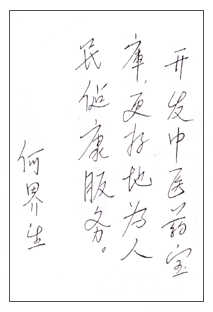 开发中医药宝
库，更好地为人
民健康服务。
何界生